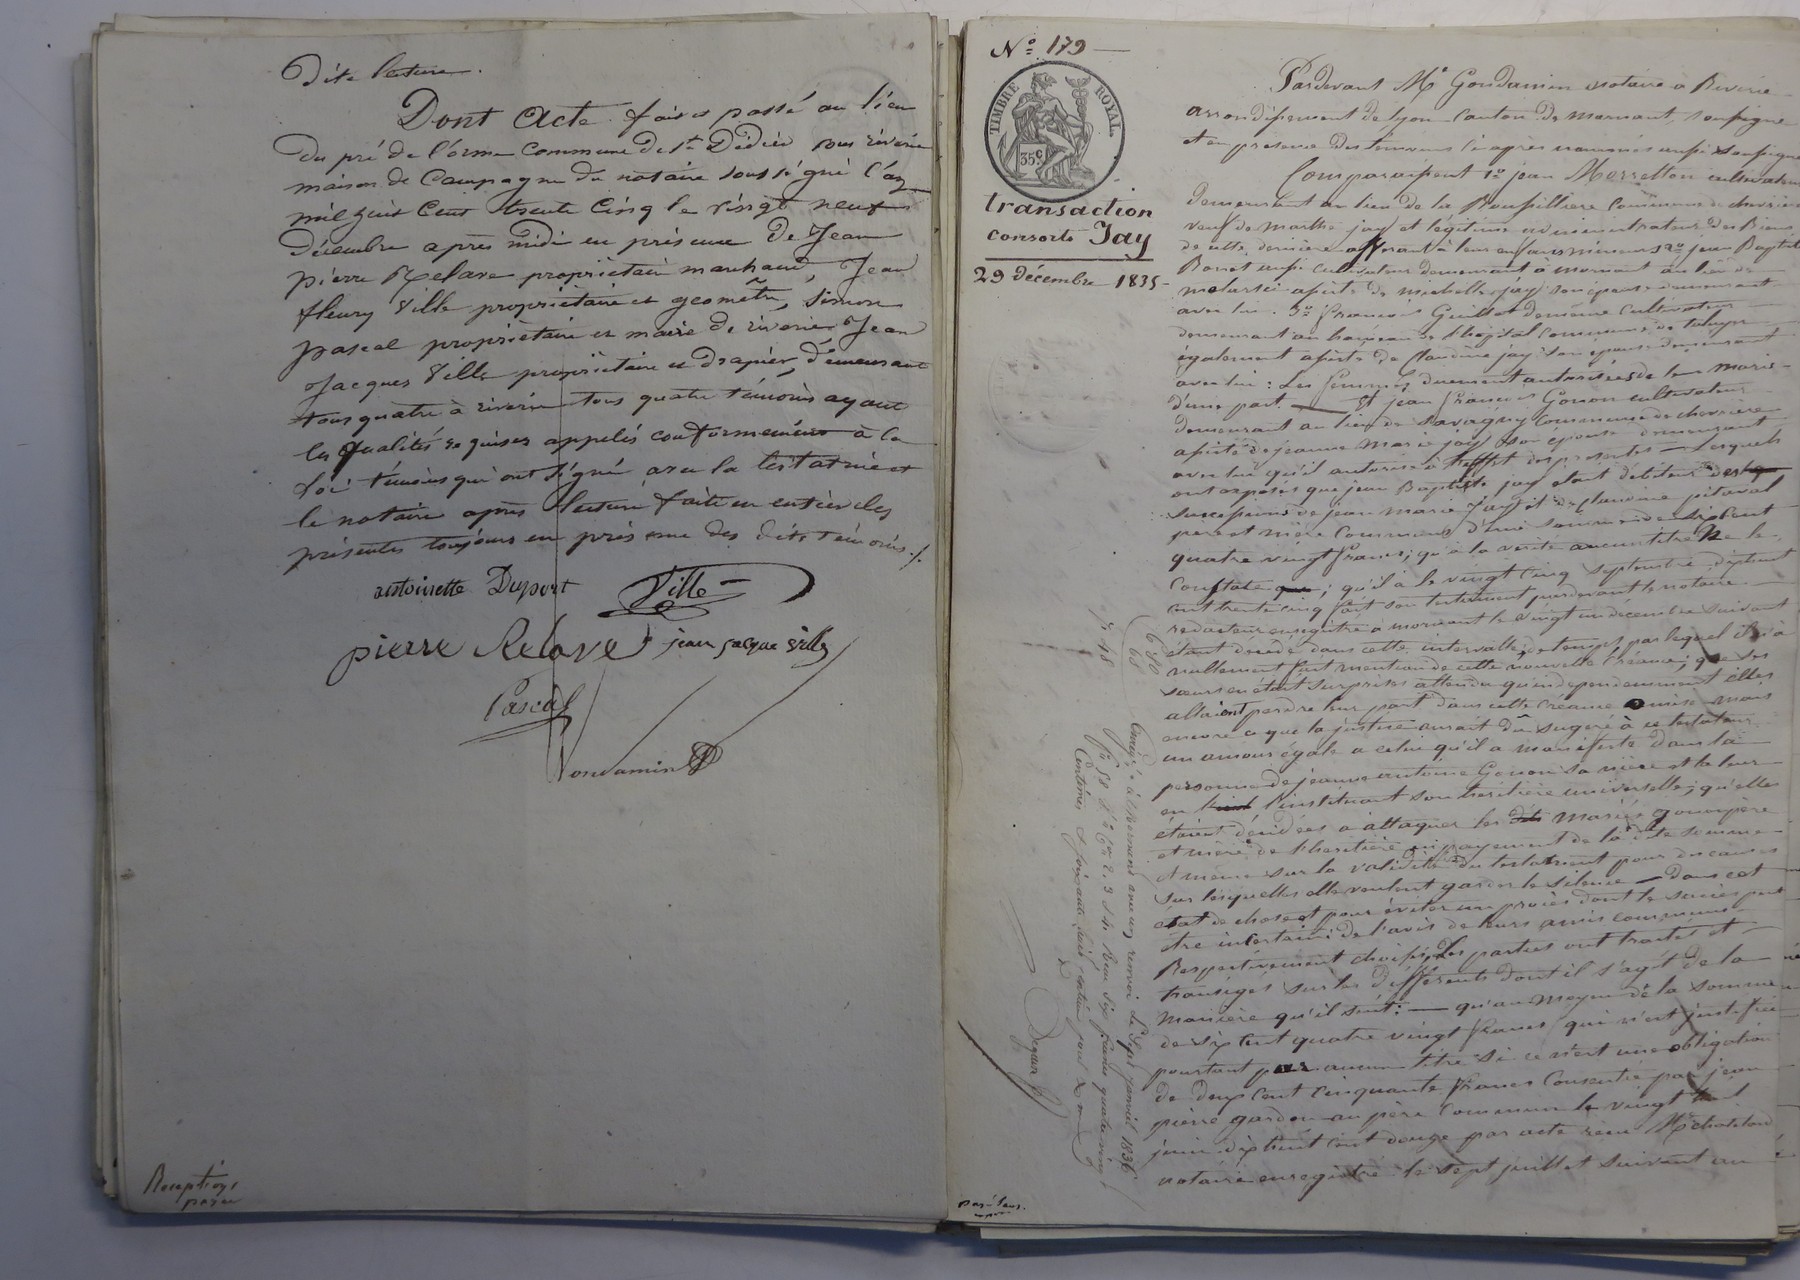 Dite lecture.
Dont Acte fait et passé au lieu
du pré de l'orme commune de St Didier sous riverie
maison de Campagne du notaire soussigné l'an
mil huit Cent trente Cinq le vingt neuf
décembre après midi en présence De Jean
pierre Relave propriétaire marchand, Jean
fleury Ville propriétaire et geomêtre, Simon
pascal propriétaire et maire de riverie Jean
Jacques Ville propriétaire et drapier, demeurant
tous quatre à riverie tous quatre témoins ayant
les qualités requises appelés conformement à la
loi témoins qui ont signé avec la testatrice et
le notaire après lecture faite en entier des
présentes toujours en présence des dits témoins ./.
antoinette Duport Ville
pierre Relave jean jacque ville
Pascal
Gondamin
Receptions
payé
No 179
TIMBRE ROYAL
35 c
transaction
consorts Jay
29 décembre 1835
Pardevant Me Gondamin notaire à Riverie
arrondissement de Lyon Canton de Mornant, soussigné
et en presence des temoins ci après nommés aussi soussignés
Comparaissent 1o jean cultivateur
demeurant au lieu de la Commune de
veuf de marthe jay et légitime administrateur des Biens
de cette dernière à leurs enfans mineurs 2o jean Baptiste
aussi cultivateur demeurant à mornant au lieu de
de jay son épouse demeurant
avec lui. 3o françois cultivateur
demeurant au hameau de l'hopital Commune de
également de Claudine jay son épouse demeurant
avec lui: Les femmes duement autorisées de leur maris
d'une part. Et jean françois Gonon cultivateur
demeurant au lieu de Savigny Commune de
de jeanne Marie jay son épouse demeurant
avec lui qu'il autorise à l'effet des presentes Lesquels
ont exposés que jean Baptiste jay étant débiteur des
successions de jean marie jay et de pitaval
père et mère Communs d'une somme de six Cent
quatre vingt francs; qu'à la vérité aucun titre ne le
Constate que; qu'il a le vingt Cinq septembre dix huit
cent trente cinq fait son testament pardevant le notaire
redacteur enregistré à mornant le vingt un decembre suivant
étant décédé dans cette intervalle de temps par lequel il n'a
nullement fait mention de cette nouvelle Créance; que ses
sœurs en étant surprises attendu qu'indépendamment elles
allaient perdre leur part dans cette Créance mais
encore ce que la justice aurait dû sugeré à ce testateur
un amour égale a celui qu'il a manifesté dans la
personne de jeanne antoine Gonon sa nièce et la leur
en l'instituant son heritière universelle; qu'elles
étaient décidées a attaquer les dits mariés gonon père
et mère de l'heritière en payement de la dite somme
et même sur la validité du testament pour des causes
sur lesquelles elle veulent garder le silence — Dans cet
état de chose et pour éviter un procès dont le succès peut
être incertain: de l'avis de leurs amis communs
Respectivement choisis, Les parties ont traités et
transigés sur les différents dont il s'agit de la
manière qu'il suit: — qu'au moyen de la somme
de six cent quatre vingt francs qui n'est justifiée
pourtant par aucun titre si ce n'est une obligation
de deux cent cinquante francs Consentie par jean
pierre gardon au père Commun le vingt
juin dix huit cent douze par acte reçu Me
notaire enregistré le sept juillet suivant au
680
68
748
Enregistré à Mornant renvoi Le sept janvier 1836
fo 58 Ro Ces 2. 3 et 4. Reçu six francs quatre vingt
Centimes et